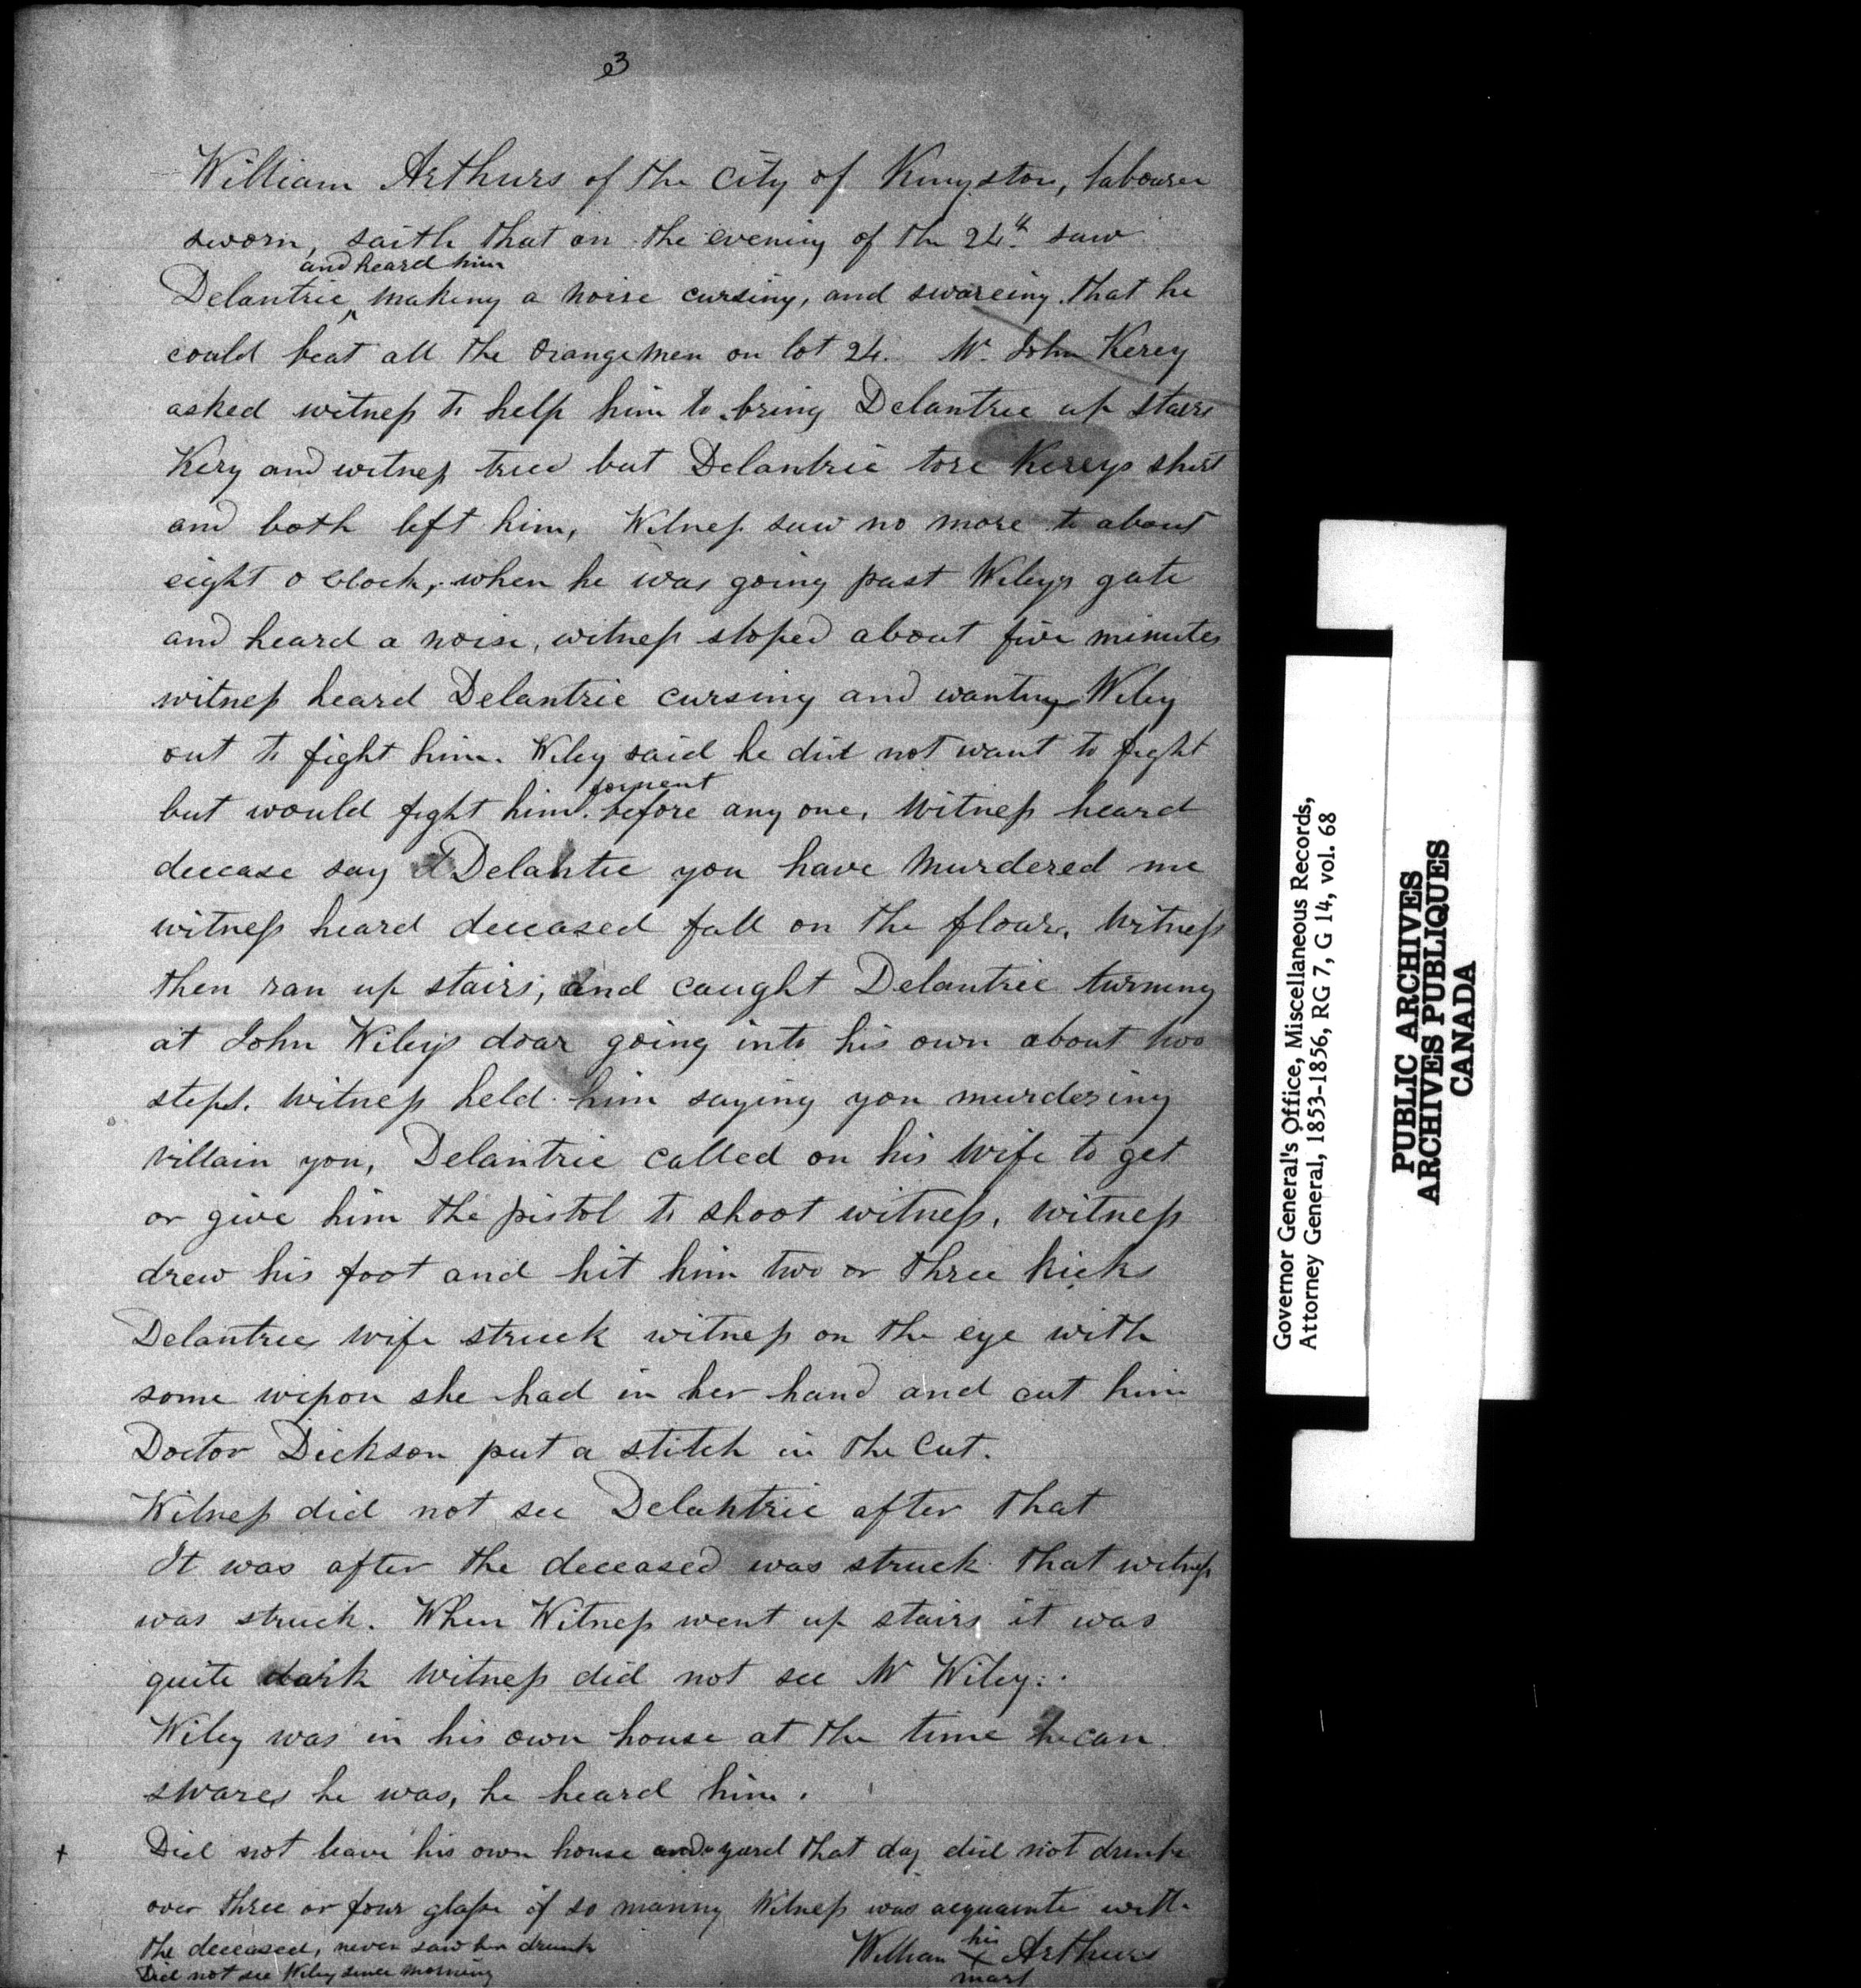 3
William Arthurs of the City of Kingston, labourer
sworn, saith that on the evening of the 24th saw
and heard him
Delantrie, making a noise cursing, and swareing that he
could beat all the Orangemen on lot 24. Mr John Kerey
asked witness to help him to bring Delantree up stairs
Kery and witness tried but Delantrie tore Kereys shirt
and both left him, Witness saw no more to about
eight o Clock, when he was going past Wileys gate
and heard a noise, witness stoped about five minutes
witness heard Delantrie cursing and wanting Wiley
out to fight him. Wiley said he did not want to fight
forment
but would fight him before any one, Witness heard
decease say Delantie you have Murdered me
witness heard deceased fall on the floar, Witness
then ran up stairs, and caught Delantrie turning
at John Wileys doar going into his own about two
steps. Witness held him saying you murdering
villain you, Delantrie called on his Wife to get
or give him the pistol to shoot witness, witness
drew his foot and hit him two or three kicks
Delantries wife struck witness on the eye with
some wepon she had in her hand and cut him
Doctor Dickson put a stitch in the Cut.
Witness did not see Delantrie after that
It was after the deceased was struck that witness
was struck. When Witness went up stairs it was
quite dark Witness did not see Mr Wiley.
Wiley was in his own house at the time he can
swares he was, he heard him.
+ Did not leave his own house and yard that day did not drink
over three or four glasse if so manny Witness was acquainte with
the deceased, never saw her drunk
Did not see Wiley since morning
his
William X Arthurs
mark
Governor General's Office, Miscellaneous Records,
Attorney General, 1853-1856, RG 7, G 14, vol. 68
PUBLIC ARCHIVES
ARCHIVES PUBLIQUES
CANADA